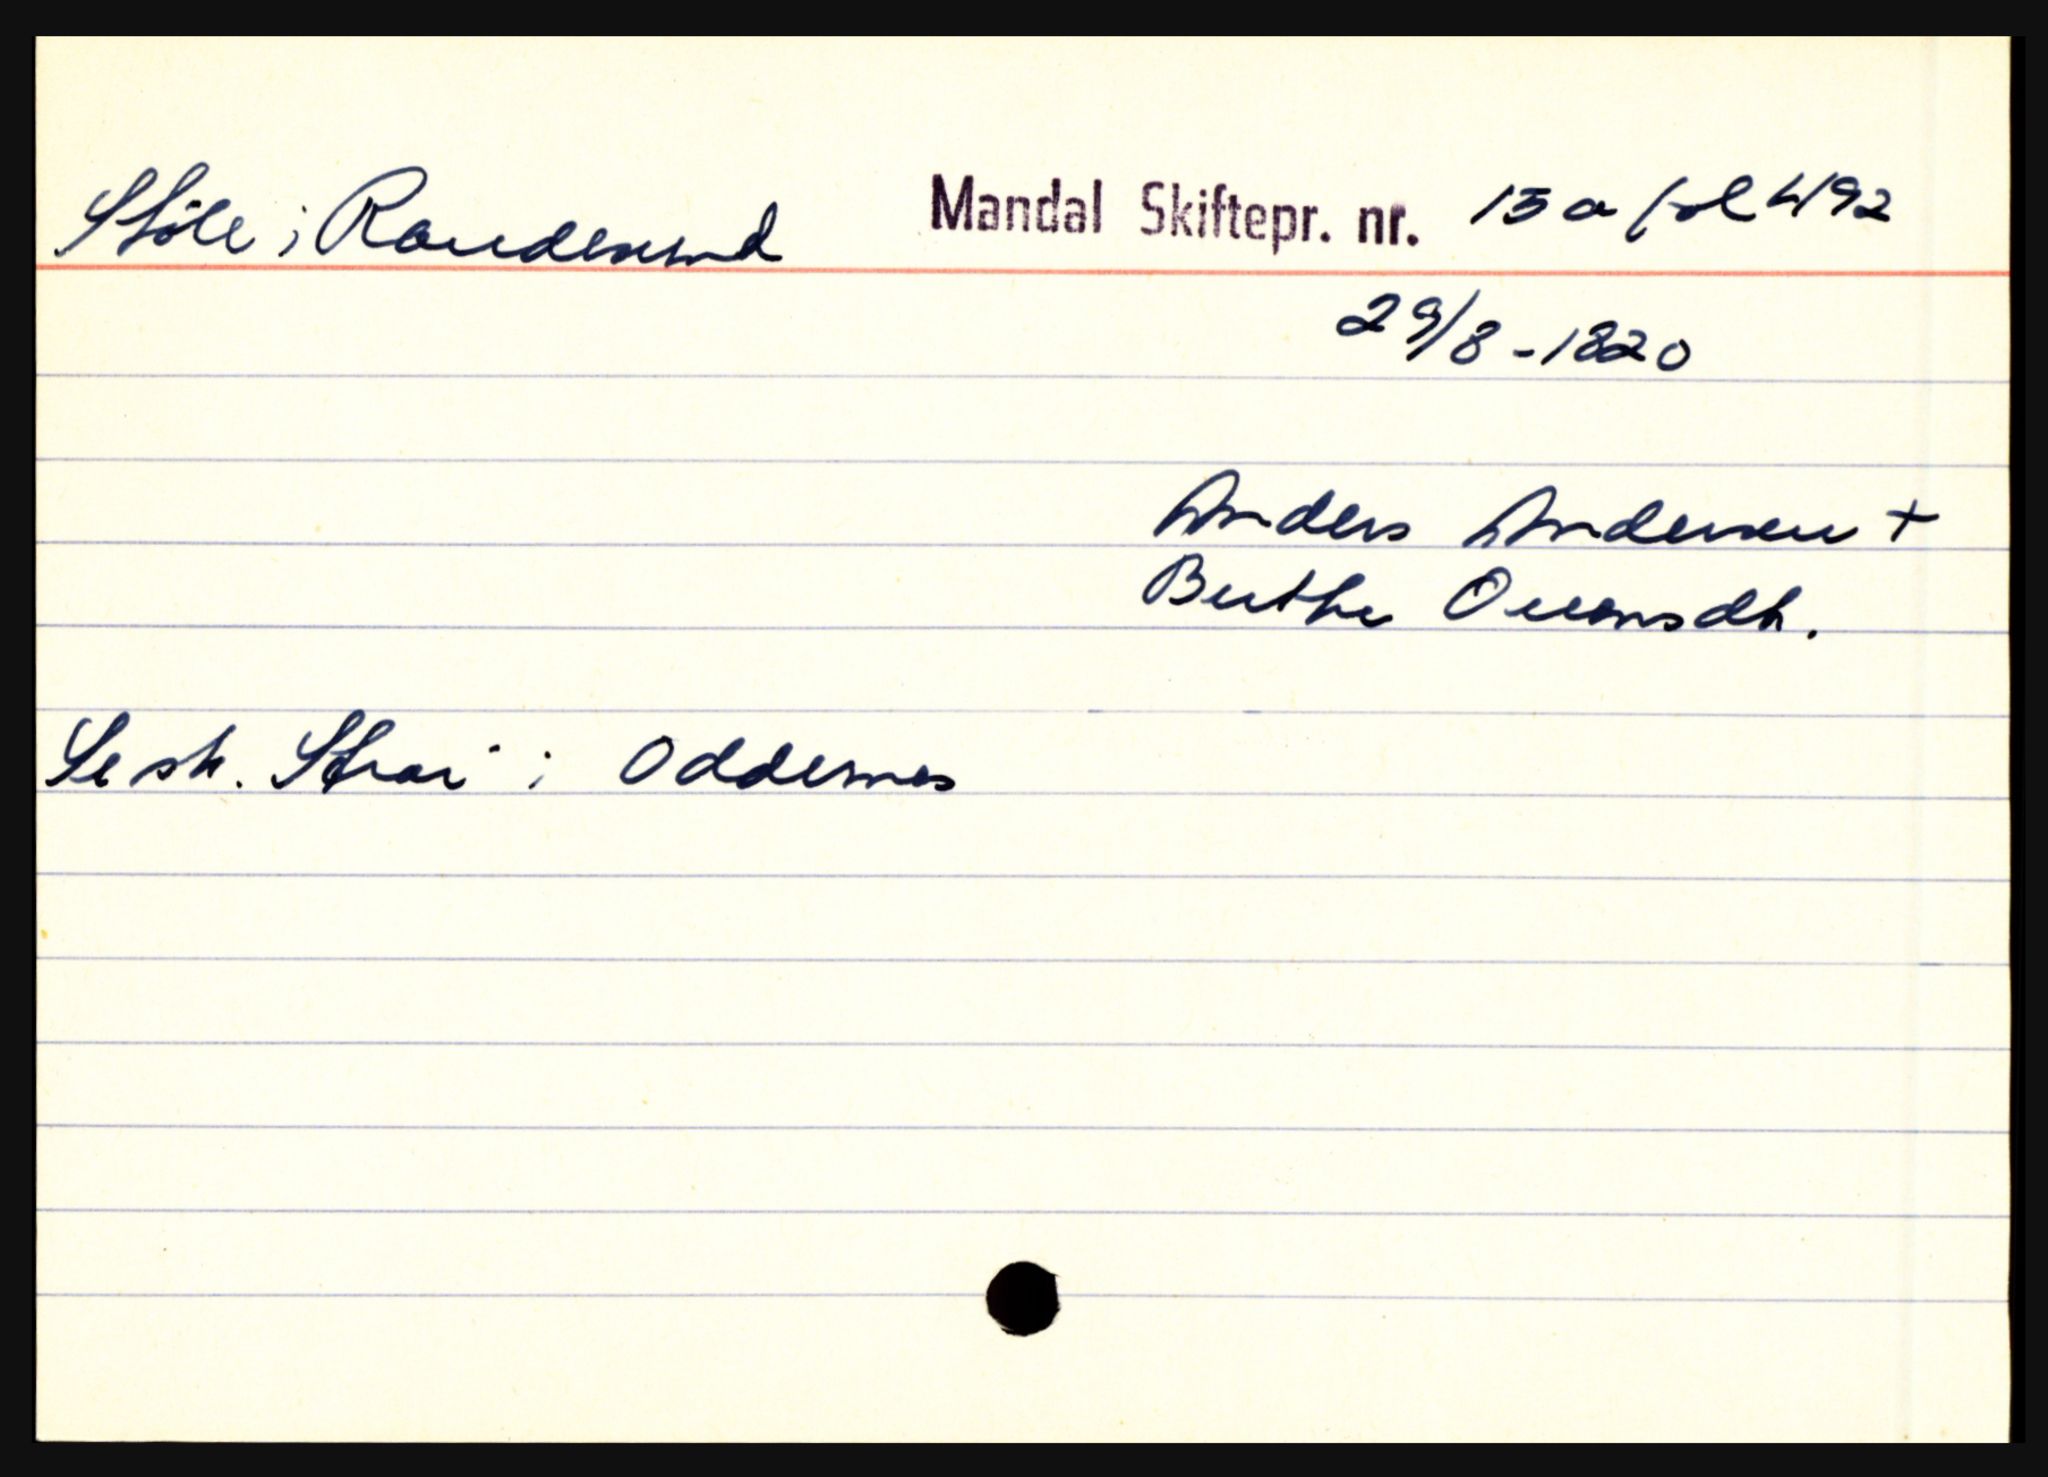 Støle i Randesund Mandal Skiftepr. nr. 15 a fol 492
29/8-1820
Anders Andersen +
Berthe Ouensdh.
Se sk. Strai i Oddernes